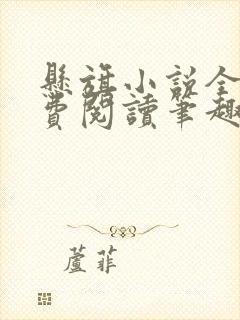 懸旗小說全
費閱讀筆趣
蘆菲